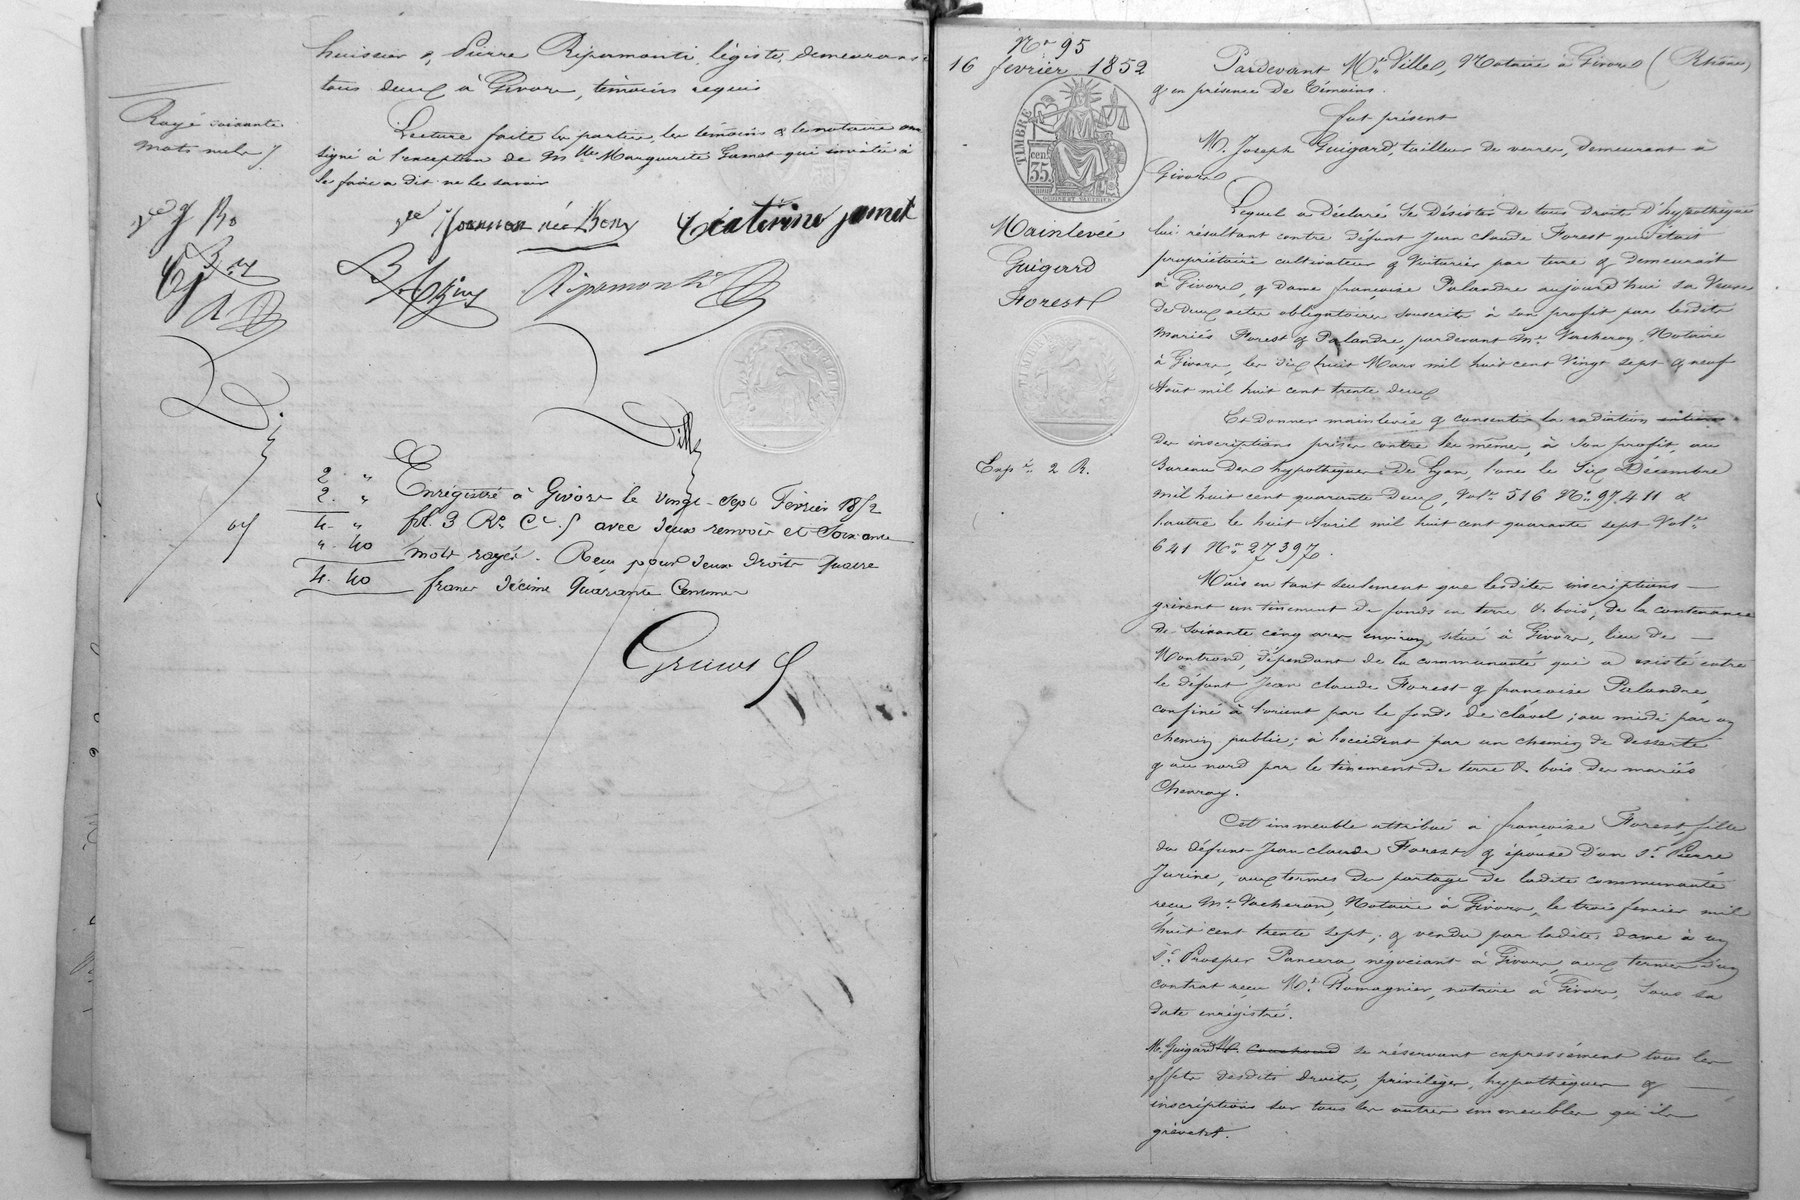 huissier & Pierre Ripamonti, légiste, demeurant
tous deux à Givors, témoins requis
Lecture faite la partie, les témoins & le notaire ont
signé à l'exception de Mlle Marguerite Gamet qui invitée à
le faire a dit ne le savoir
Rayé soixante
mots nuls
Caterine jamet
Ripamonti
Enrégistré à Givors le vingt-sept Février 1852
fol. 3 Ro. Ce. 5 avec deux renvois et Soixante
mots rayés. Reçu pour deux droits quatre
francs décime quarante Centimes
2 "
2. "
4. "
". 40
4. 40
No 95
16 février 1852
TIMBRE
35 cent.
Mainlevée
Guigard
Forest
Expé. 2 R.
Pardevant Me. Ville, Notaire à Givors (Rhône)
& en présence de témoins.
fut présent
M. Joseph Guigard, tailleur de verres, demeurant à
Givors
Lequel a déclaré se désister de tous droits d'hypothèques
lui résultant contre défunt Jean Claude Forest qui était
propriétaire cultivateur & voiturier par terre & demeurait
à Givors, & dame françoise Palandre aujourd'hui sa Veuve
de deux actes obligatoires souscrits à son profit par lesdits
mariés Forest & Palandre, pardevant Me. Vacheron, Notaire
à Givors, les dix huit Mars mil huit cent vingt sept & neuf
Août mil huit cent trente deux
Et donner mainlevée & consentir la radiation entière
des inscriptions prises contre les mêmes, à son profit, au
Bureau des hypothèques de Lyon, l'une le six Décembre
mil huit cent quarante deux, Vol. 516 No. 97.411 &
l'autre le huit Avril mil huit cent quarante sept Vol.
641 No. 27397.
Mais en tant seulement que lesdites inscriptions
grèvent un tènement de fonds en terre & bois, de la contenance
de soixante cinq ares environ, situé à Givors, lieu de
Montrond, dépendant de la communauté qui a existé entre
le défunt Jean Claude Forest & françoise Palandre,
confiné à l'orient par le fonds de clavel; au midi par un
chemin public; à l'occident par un chemin de desserte
& au nord par le tènement de terre & bois des mariés
Chavroy.
Cet immeuble attribué à françoise Forest, fille
du défunt Jean claude Forest & épouse d'un sr. Pierre
Jurine, aux termes du partage de ladite communauté
reçu Me. Vacheron, Notaire à Givors, le trois février mil
huit cent trente sept; & vendu par ladite dame à un
sr. Prosper Pancera, négociant à Givors, aux termes d'un
contrat reçu Me. Romagnier, notaire à Givors, sous sa
date enrégistré.
M. Guigard se réservant expressément tous les
effets desdits droits, privilèges, hypothèques &
inscriptions sur tous les autres immeubles qu'ils
grèvent.